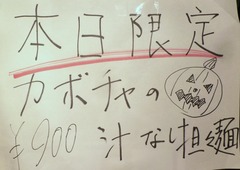 本日限定
カボチャの
¥900 汁なし担麺